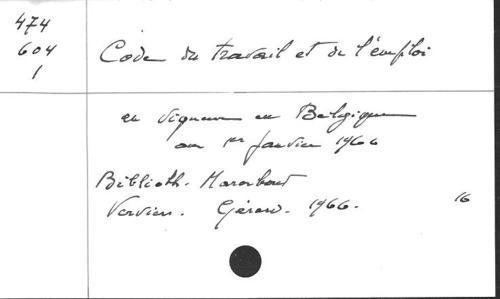 474
604
1
Code du travail et de l'emploi
en vigueur en Belgique
au 1er janvier 1966
Biblioth. Marabout
Verviers. Gérard. 1966.
16